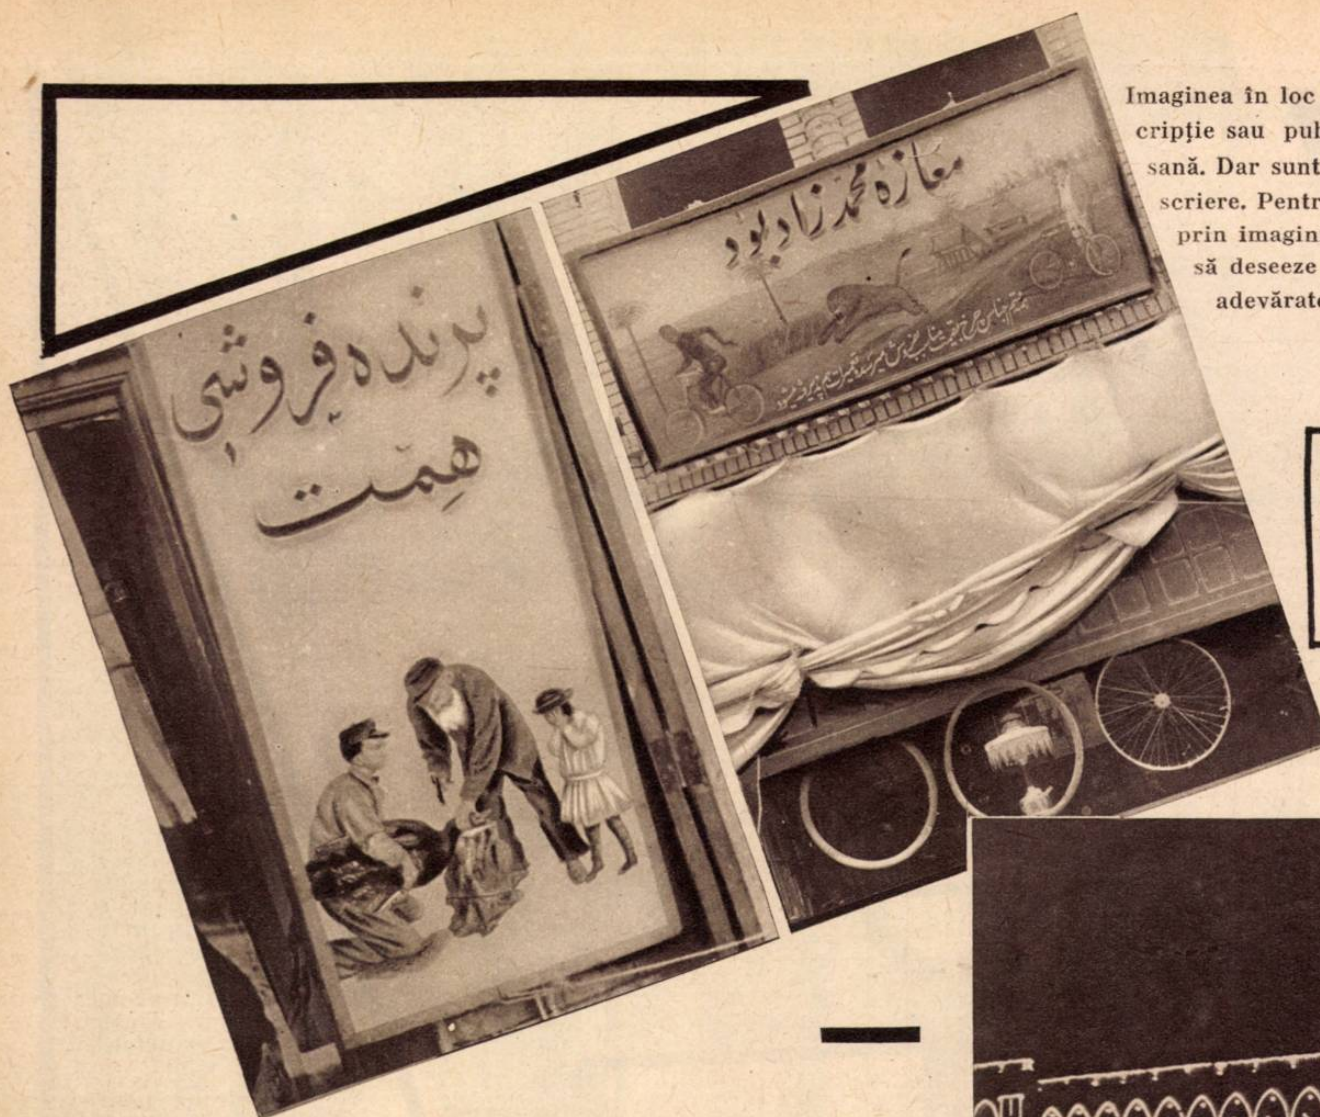 Imaginea în loc
cripţie sau pub
sană. Dar sunt
scriere. Pentr
prin imagin
să deseeze
adevărate
پرنده فروشی
همت
مغازه محمد زاد بود